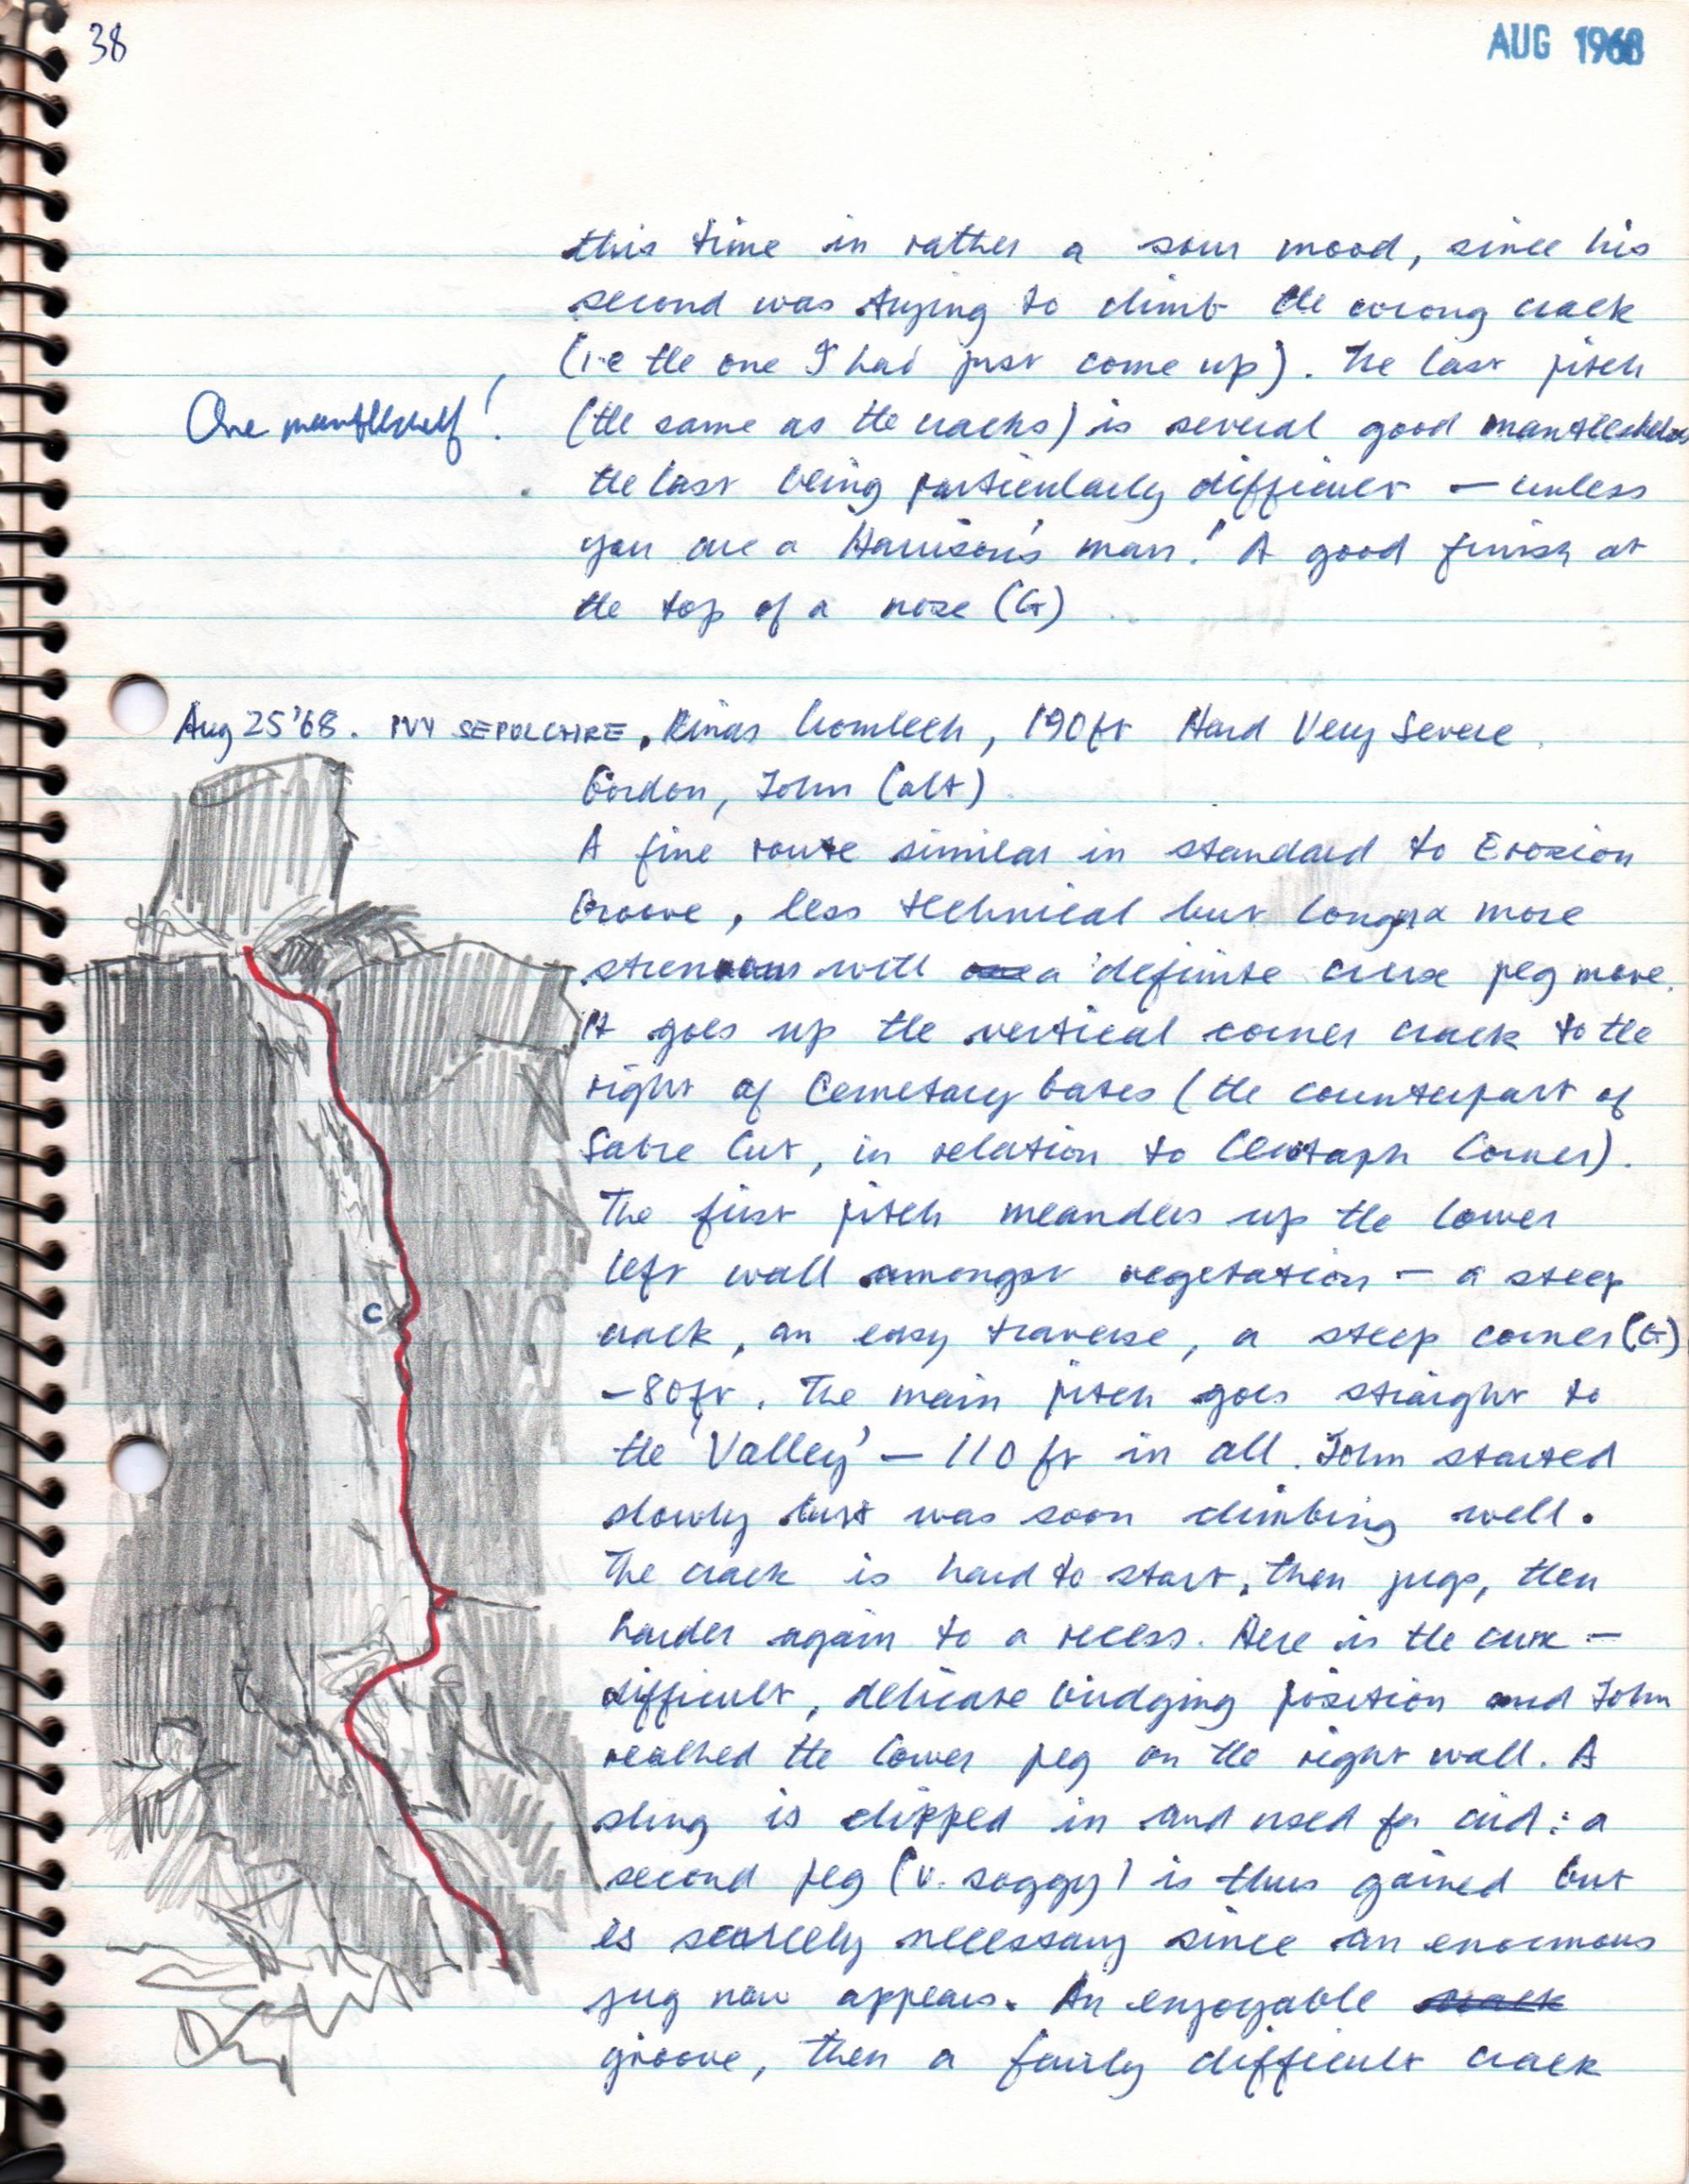 38
AUG 1968
this time in rather a sour mood, since his
second was trying to climb the wrong crack
(i.e the one I had just come up). The last pitch
One mantleshelf!
(the same as the cracks) is several good mantleshelves
the last being particularly difficult – unless
you are a 'Harrison's man'! A good finish at
the top of a nose (G)
Aug 25 '68. IVY SEPULCHRE, Dinas Cromlech, 190ft Hard Very Severe.
Gordon, John (alt)
A fine route similar in standard to Erosion
Groove, less technical but longer & more
strenuous with a definite crux peg move.
It goes up the vertical corner crack to the
right of Cemetary Gates (the counterpart of
Sabre Cut, in relation to Cenotaph Corner).
The first pitch meanders up the lower
left wall amongst vegetation – a steep
crack, an easy traverse, a steep corner (G)
– 80ft. The main pitch goes straight to
the 'Valley' – 110 ft in all. John started
slowly but was soon climbing well.
C
The crack is hard to start, then jugs, then
harder again to a recess. Here is the crux –
difficult, delicate bridging position and John
reached the lower peg on the right wall. A
sling is clipped in and used for aid: a
second peg (v. soggy) is thus gained but
is scarcely necessary since an enormous
jug now appears. An enjoyable crack
groove, then a fairly difficult crack